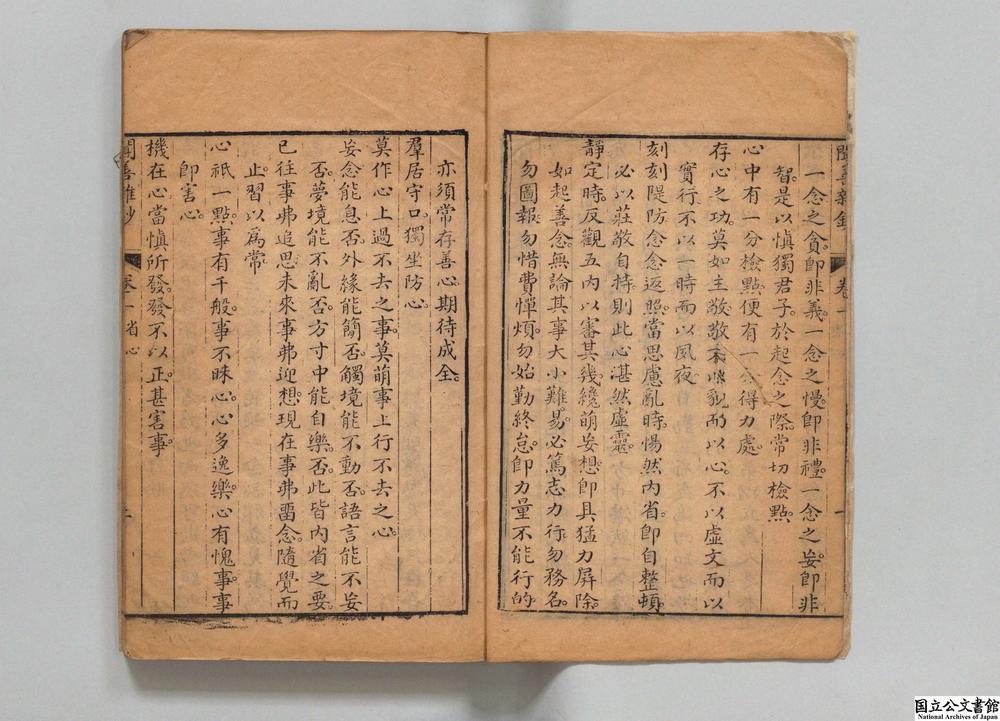 一念之貪。即非義。一念之慢。即非禮。一念之妄。即非
智。是以愼獨君子。於起念之際。常切檢點。
心中有一分檢點。便有一分得力處。
存心之功。莫如主敬。敬不以貌而以心。不以虛文而以
實行。不以一時而以夙夜。
刻刻隄防。念念返照。當思慮亂時。惕然內省。即自整頓。
必以莊敬自持。則此心湛然虛靈。
靜定時。反觀五內。以審其幾。纔萌妄想。即具猛力屛除。
如起善念。無論其事大小難易。必篤志力行。勿務名。
勿圖報。勿惜費憚煩。勿始勤終怠。即力量不能行的。
卷一
一
亦須常存善心。期待成全。
羣居守口。獨坐防心。
莫作心上過不去之事。莫萌事上行不去之心。
妄念能息否。外緣能簡否。觸境能不動否。語言能不妄
否。夢境能不亂否。方寸中能自樂否。此皆內省之要。
已往事弗追思。未來事弗迎想。現在事弗畱念。隨覺而
止。習以爲常。
心祇一點。事有千般。事不昧心。心多逸樂。心有愧事。事
即害心。
機在心。當愼所發。發不以正。甚害事。
卷一 省心
國立公文書館
National Archives of Japan